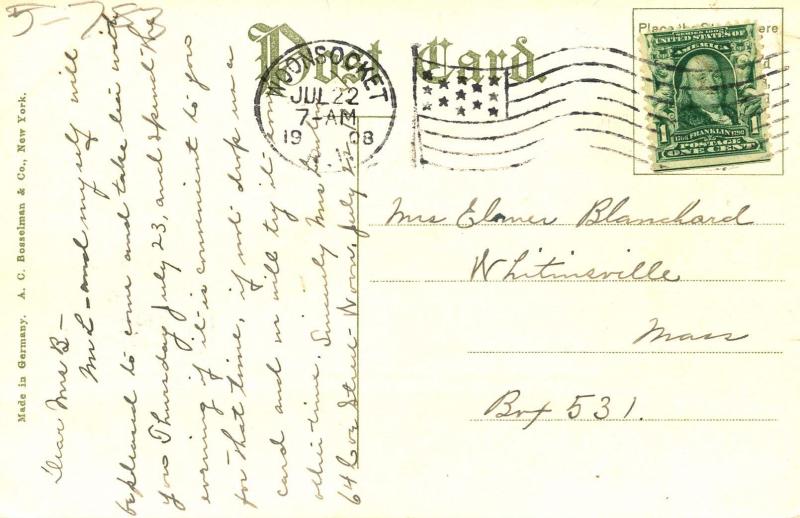 5-
Post Card.
Place the Stamp Here
WOONSOCKET
JUL 22
7-AM
1908
SERIES 1902
UNITED STATES OF
AMERICA
1706 FRANKLIN 1790
1 POSTAGE 1
ONE CENT
Made in Germany. A. C. Bosselman & Co., New York.
Dear Mrs B-
Mr L- and myself will
be pleased to come and take tea with
you Thursday July 23, and spend the
evening if it is convenient to you
for that time, if not drop me a
card and we will try it some
other time. Sincerely Mrs
64 Street- Woon, July 21-
Mrs Elmer Blanchard
Whitinsville
Mass
Box 531.